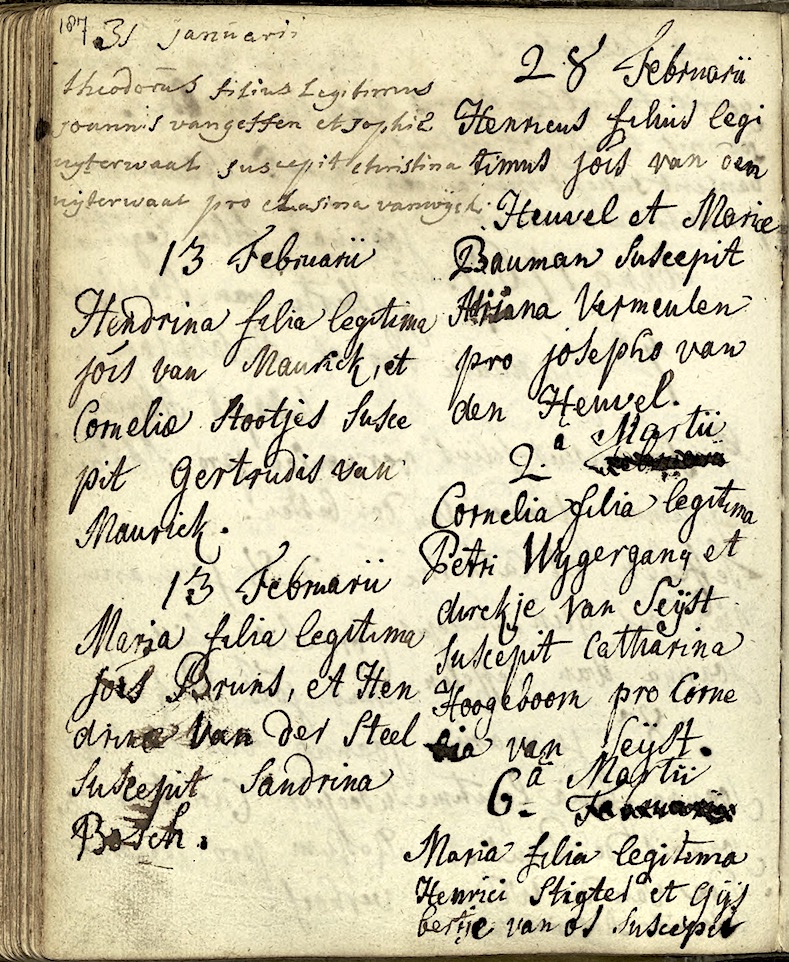 187
31 januarii
theodorus filius Legitimus
joannis van geffen et sophiæ
uyterwaal suscepit christina
uyterwaal pro vanwyck
13 Februarii
Hendrina filia legitima
jois van Maurick, et
Corneliæ Stootjes Susce
pit Gertrudis van
Maurick.
13 Februarii
Maria filia legitima
jois Bruns, et Hen
drinæ Van der Steel
Suscepit Sandrina
Bosch.
28 Februarii
Henricus filius legi
timus jois van den
Heuvel et Mariæ
Bauman Suscepit
Adriana Vermeulen
pro josepho van
den Heuvel.
2.a Martii
Cornelia filia legitima
Petri Wygergang et
dirckje van Seÿst
suscepit Catharina
Hoogeboom pro Corne
lia van Seÿst.
6.a Martii
Februarii
Maria filia legitima
Henrici Stigter et Gÿs
bertje van os suscepit